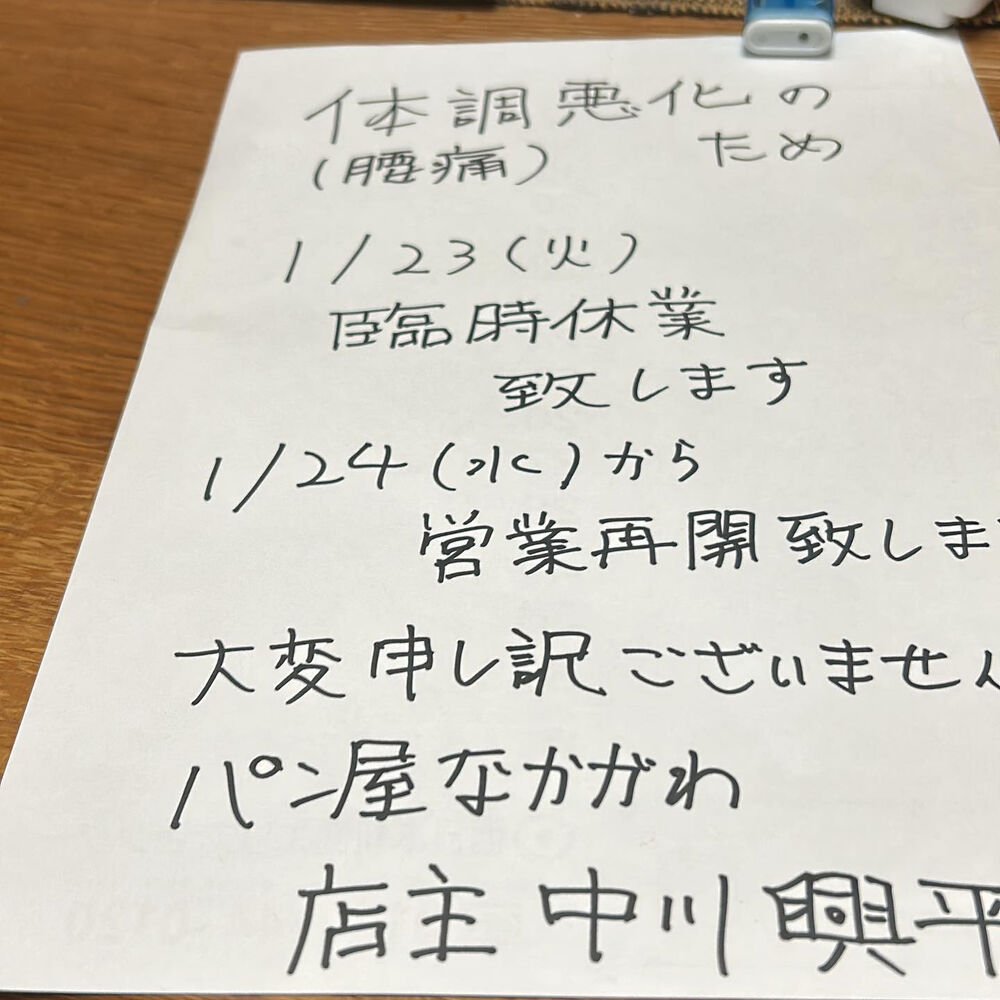 体調悪化の
(腰痛) ため
1/23(火)
臨時休業
致します
1/24(水)から
営業再開致しま
大変申し訳ございません
パン屋なかがわ
店主 中川興平